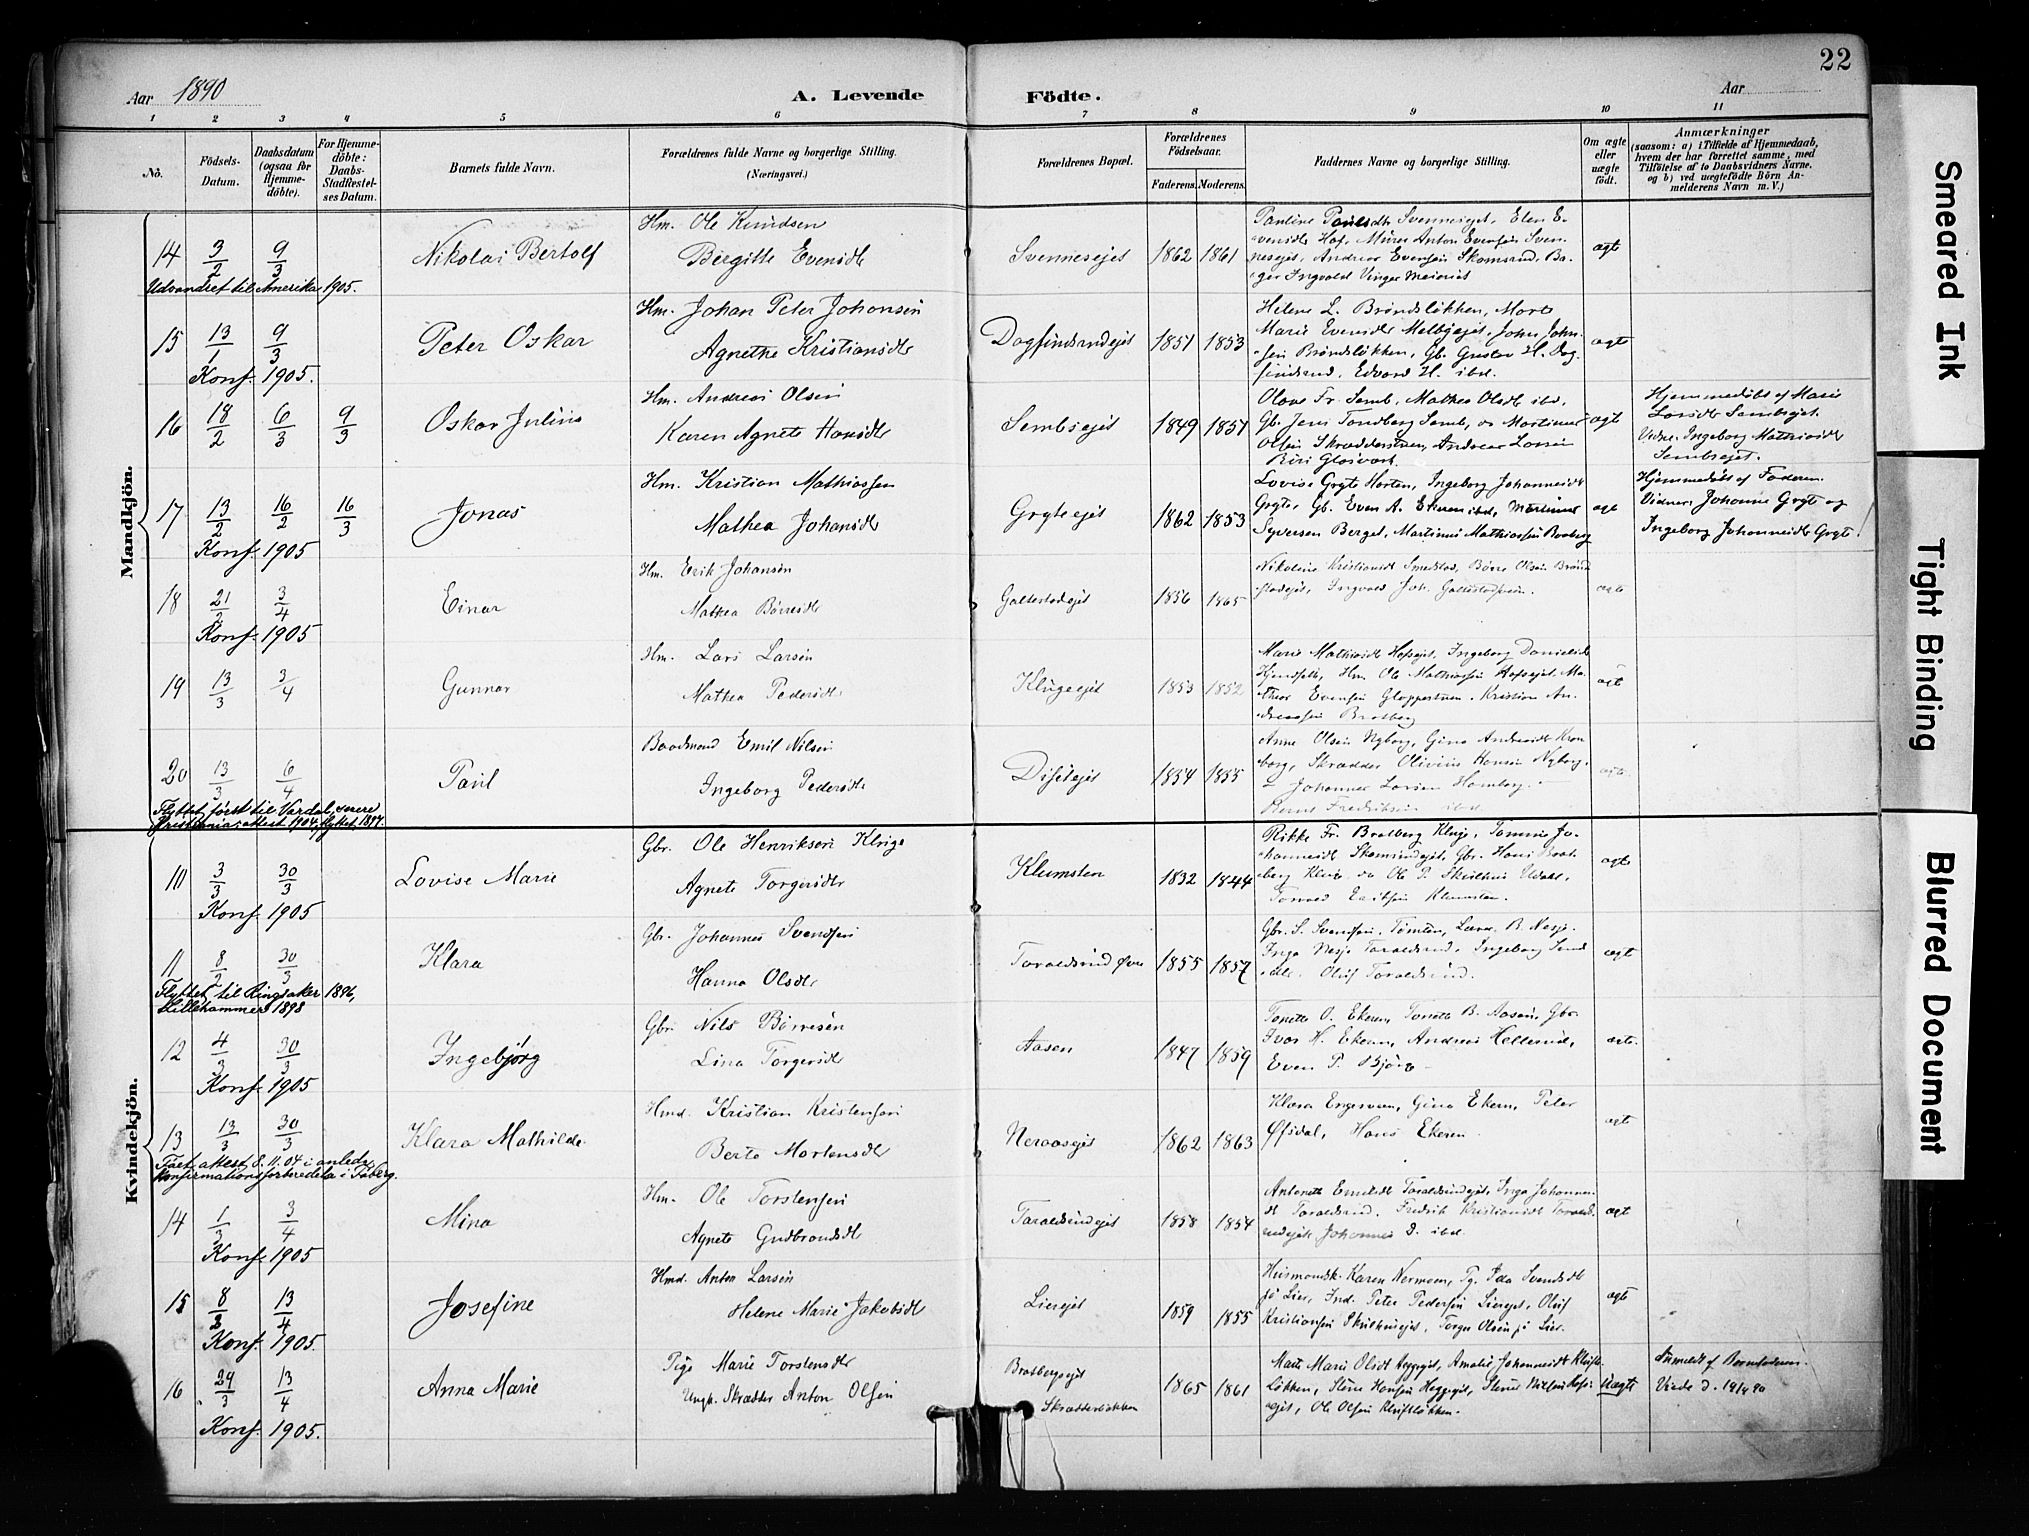 22
Aar 1890
A. Levende Födte.
Aar
1 2 3 4 5 6 7 8 9 10 11
No.
Födsels-Datum.
Daabsdatum (ogsaa för Hjemme-döbte).
For Hjemme-döbte: Daabs-Stadfæstel-ses Datum.
Barnets fulde Navn.
Forældrenes fulde Navne og borgerlige Stilling. (Næringsvei.)
Forældrenes Bopæl.
Forældrenes Födselsaar.
Faderens. Moderens.
Faddernes Navne og borgerlige Stilling.
Om ægte eller uægte födt.
Anmærkninger
(saasom: a) i Tilfælde af Hjemmedaab,
hvem der har forrettet samme, med
Tilföielse af to Daabsvidners Navne.
og b) ved uægtefödte Börn An-
melderens Navn m. V.)
Mandkjön.
14 3/2 9/3 Nikolai Bertolf
Hm. Ole Knudsen
Birgitte Evensdt
Svennesejet 1862 1861
Pauline Paulsdt Svennesejet, Elen E-
vensdt Hof, Murer Anton Evensen Sven-
nesejet, Andreas Evensen Skomsrud, Ba-
ger Ingvald Vinger Meieriet
ægt
Udvandret til Amerika 1905.
15 13/1 9/3 Peter Oskar
Hm. Johan Peter Johansen
Agnethe Kristiansdt
Dagfindsrudejet 1851 1853
Helene L. Brøndsløkken, Marte
Marie Evensdt Melbyejet, Johan Johan-
sen Brøndsløkken, Gb. Gustav H. Dag-
findsrud, Edvard H. ibd.
ægte
Konf. 1905.
16 18/2 6/3 9/3 Oskar Julius
Hm. Andreas Olsen
Karen Agnete Hansdt
Sembsejet 1849 1851
Olava Fr. Semb, Mathea Olsdt ibd.
Gb. Jens Tandberg Semb, og Martinus
Olsen Skrædderstuen, Andreas Larsen
Biri Glasværk.
ægt
Hjemmedøbt af Marie
Larsdt Sembsejet.
Vidne. Ingeborg Mathiasdt
Sembsejet.
17 13/2 16/2 16/3 Jonas
Hm. Kristian Mathiassen
Mathea Johansdt
Gryteejet 1862 1853
Lovise Gryt Horten, Ingeborg Johannesdt
Gryte, Gb. Even A. Ekeren ibd, Martinus
Syversen Berget, Martinus Mathiassen Braaberg
ægt
Hjemmedøbt af Faderen.
Vidner, Johanne Gryt og
Ingeborg Johannesdt Gryt.
Konf. 1905
18 21/2 3/4 Einar
Hm. Erik Johansen
Mathea Børresdt
Galterudejet 1856 1865
Nikoline Kristiansdt Smedstad, Børre Olsen Brønd-
ægte
Konf. 1905
19 13/3 3/4 Gunnar
Hm. Lars Larsen
Mathea Pedersdt
Klugeejet 1853 1852
Marie Mathiasdt Hofsejet, Ingeborg Danielsdt
Hm. Ole Mathiassen Hofsejet, Ma-
thias Evensen Gloppestuen, Kristian An-
dreassen Bratberg
ægt
20 13/3 6/4 Paul
Baadmand Emil Nilsen
Ingeborg Pedersdt
Disetejet 1854 1855
Anne Olsen Nyborg, Gina Andreasdt Kron-
borg, Skrædder Olivius Hansen Nyborg,
Johannes Larsen
Fredriksen ibd.
ægte
Flyttet først til Vardal, senere
Kristiania; attest 1904, flyttet 1897.
Kvindekjön.
10 3/3 30/3 Lovise Marie
Gbr. Ole Henriksen Kluge
Agnete Torgersdt
Klumsten 1832 1844
Rikke Fr. Bratberg Kluge, Tomine Jo-
hannesdt Skomsrudejet, Gbr. Hans Brat-
berg Kluge og Ole P. Skulhus Udahl,
Eriksen Klumsten.
ægte
Konf. 1905
11 8/2 30/3 Klara
Gbr. Johannes Svendsen
Hanna Olsdt
Taraldsrud Øvre 1855 1857
Gbr. S. Svendsen, Tømten, Lava B. Nesje.
Inga Nesje Taraldsrud, Ingeborg
Oluf Taraldsrud.
ægt
Flyttet til Ringsaker 1896,
Lillehammer 1898
12 4/3 30/3 Ingebjørg
Gbr. Nils Børresen
Lina Torgersdt
Aasen 1847 1859
Tonette O. Ekeren, Tonette B. Aasen, Gbr.
Ivar H. Ekeren, Andreas Hellerud,
Even P. Bjørge
ægte
Konf. 1905
13 13/3 30/3 Klara Mathilde
Hmd. Kristian Kristensen
Berte Mortensdt
Neraasejet 1862 1863
Klara Engesveen, Gina Ekern, Peter
Øfsdal, Hans Ekeren
ægt
Faet attest 8.11.04 i anledn
konfirmationsforberedelse i Faberg.
14 1/3 3/4 Mina
Hm. Ole Torstensen
Agnete Gudbrandsdt
Taraldsrudejet 1858 1854
Antonette Emilsdt Taraldsrudejet, Inga Johannes-
dt Taraldsrud. Fredrik Kristiansdt Taralds-
rudejet Johannes D. ibd.
ægt
Konf. 1905
15 8/3 13/4 Josefine
Hmd. Anton Larsen
Helene Marie Jakobsdt
Lierejet 1859 1855
Husmandsk. Karen Nermoen, Pg. Ida Svendsdt
på Lier, Ind. Peter Pedersen Lierejet, Oluf
Kristiansen Skulhusejet, Torger Olsen på Lier.
ægte
Konf. 1905.
16 24/3 13/4 Anna Marie
Pige Marie Torstensdt
Ungk. Skrædder Anton Olsen
Bratbergsejet
Skrædderløkken
1865 1861
Marte Marie Olsdt Heggejet, Amalie Johannesdt Kluft-
løkken, Stener Hansen Heggejet, Stener Nilsen Hofs-
ejet, Ole Olsen Kluftløkken.
uægte
Anmeldt af Barnefaderen.
Viede d. 19/4 90
Konf. 1905.
Smeared Ink
Tight Binding
Blurred Document